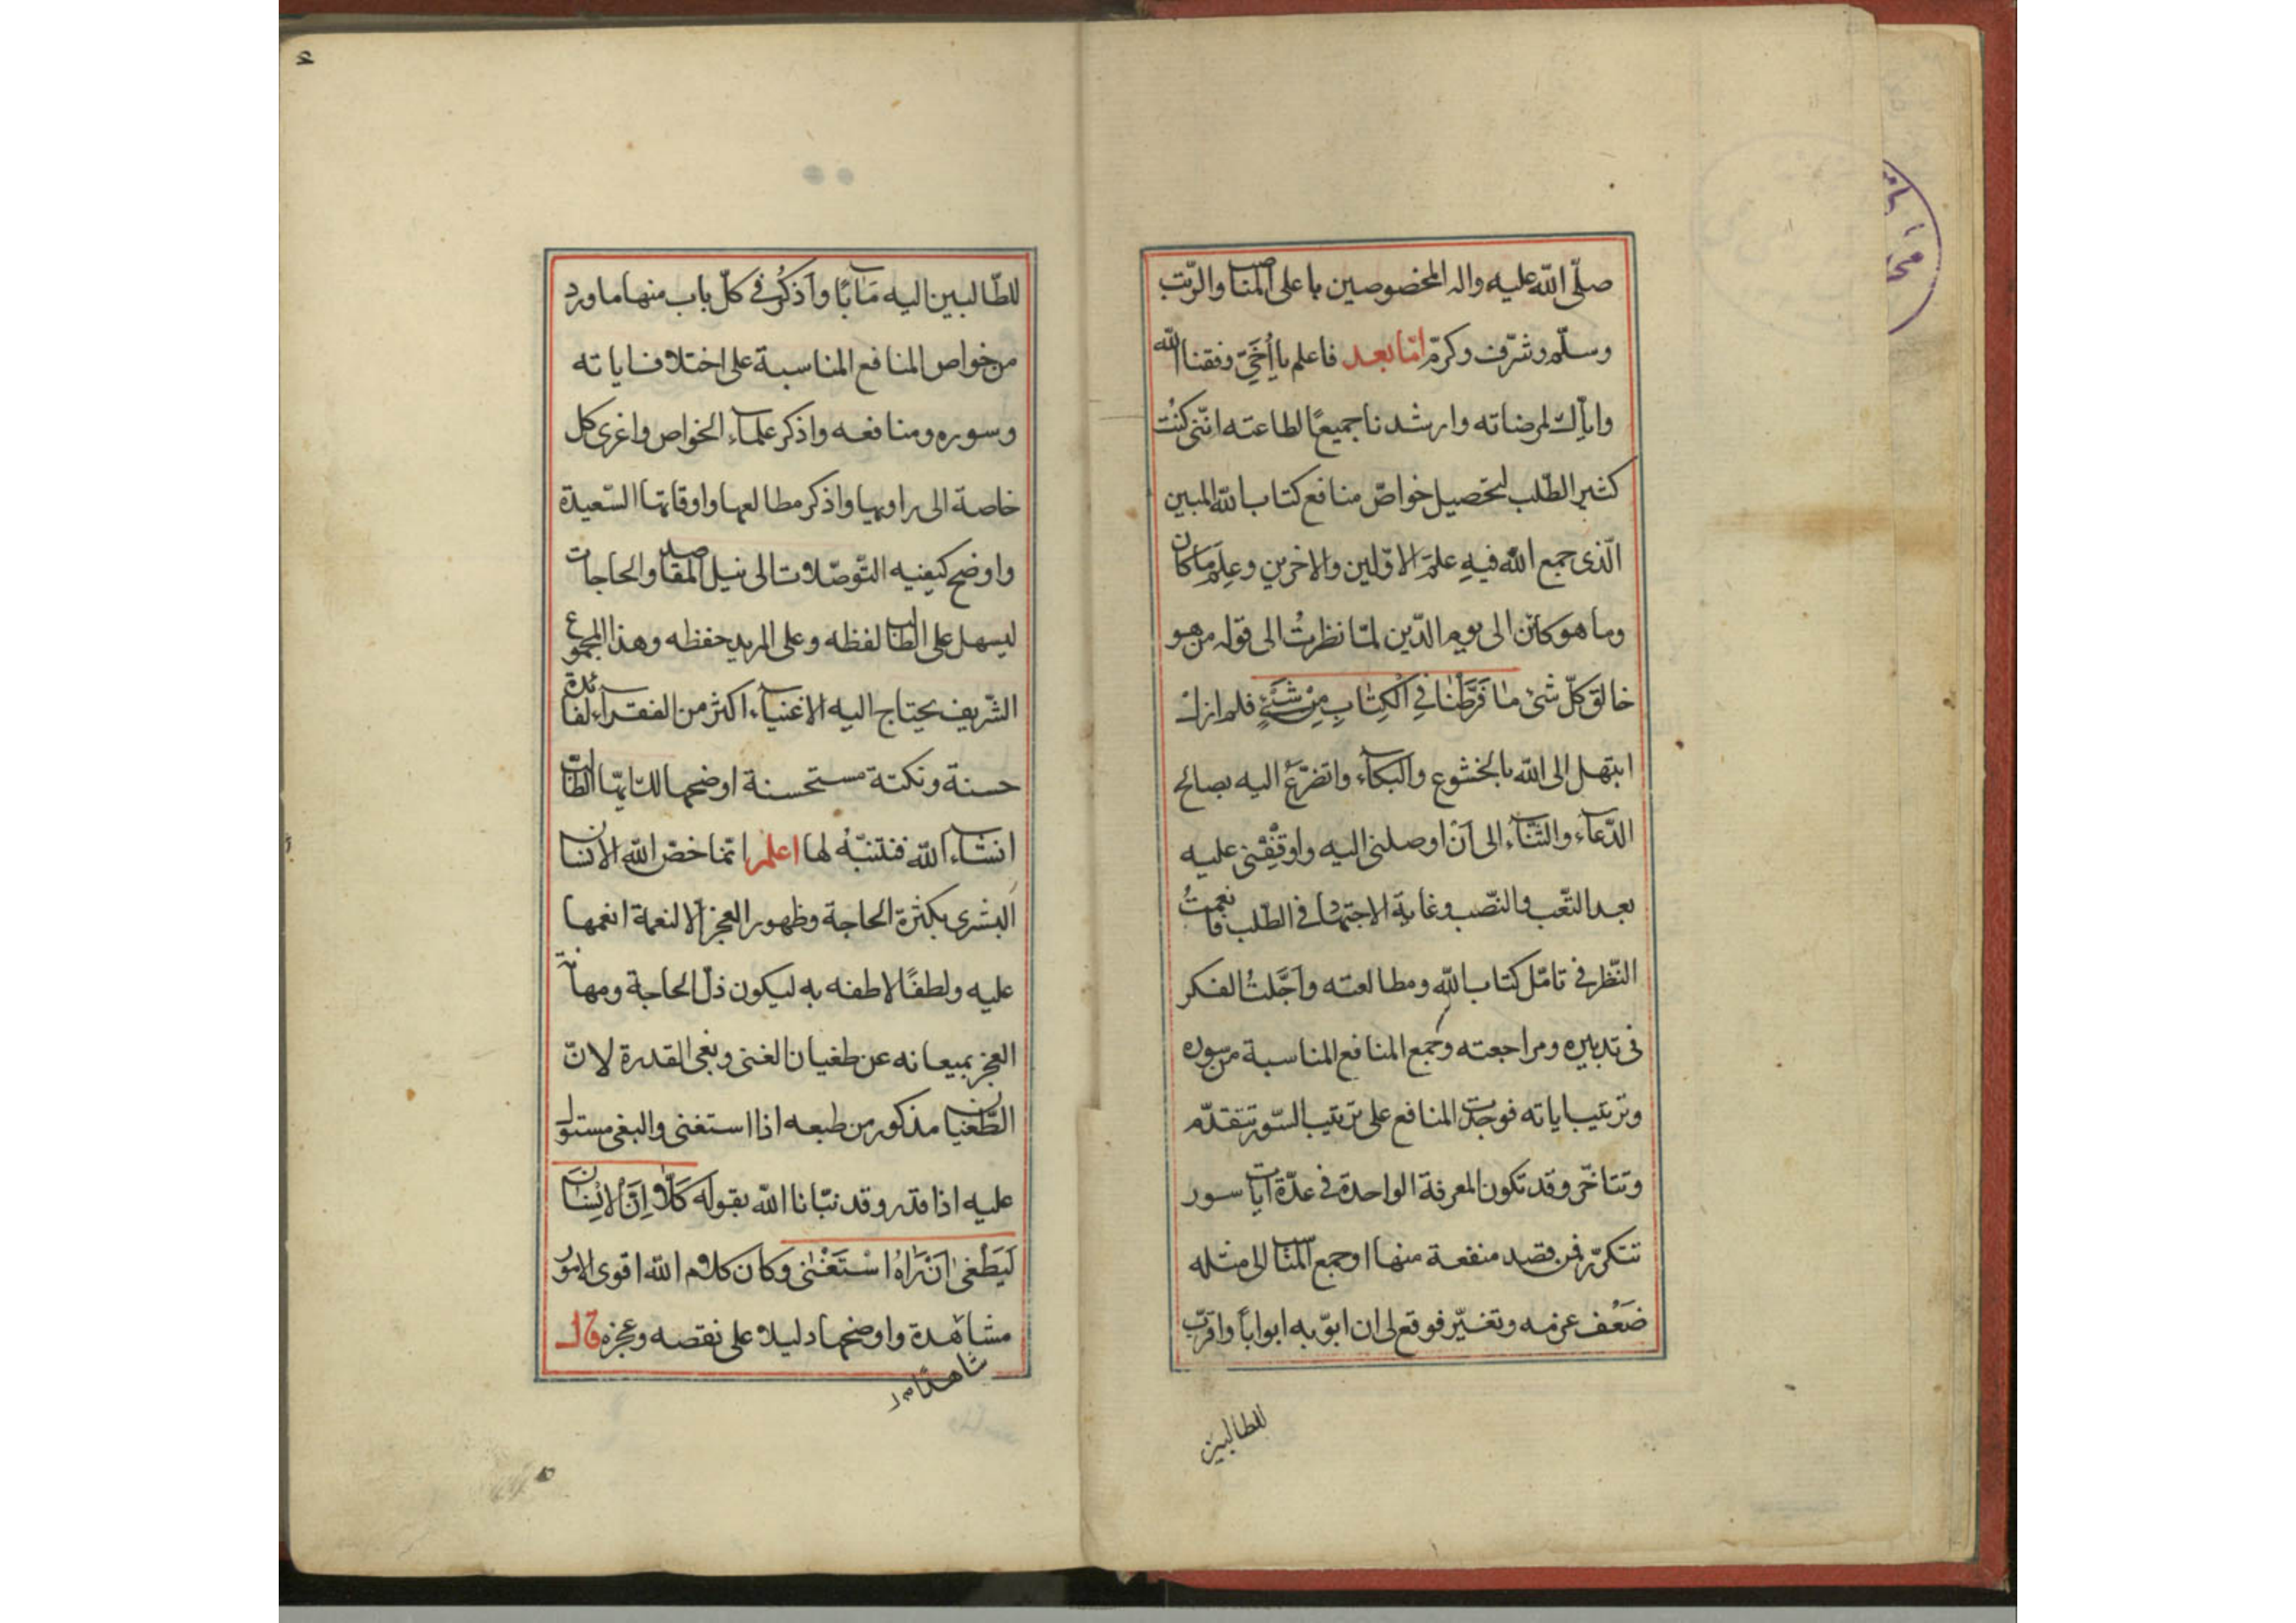 صلّى اللّه عليه واله المخصوصين باعلى المناصب والرّتب
وسلّم وشرّف وكرّم امّا بعد فاعلم يا أُخَيّ وفقنا اللّه
وايّاك لمرضاته وارشدنا جميعًا لطاعته انّنى كنُت
كثير الطّلب لتحصيل خواصّ منافع كتاب اللّه المبين
الّذى جمع اللّه فيهِ علمَ الاوّلين والاخرين وعِلمَ ما كان
وما هو كائن الى يوم الدّين لمّا نظرتُ الى قوله من هو
خالق كلّ شئ ما فَرَّطْنا فِي الْكِتابِ مِنْ شَيْءٍ فلم ازل
ابتهل الى اللّه بالخشوع والبكآء واتضرّعُ اليه بصالح
الدّعآء والثنآء الى اَنْ اوصلنى اليه واوقِفْنى عليه
بعد التّعب والنّصب وغاية الاجتهاد فى الطّلب فانعمتُ
النّظر فى تامّل كتاب اللّه ومطالعته واَجَّلتُ الفكر
فى تدبيره ومراجعته وجمع المنافع المناسبة من سوره
وترتيب اياته فوجدت المنافع على ترتيب السّور تتقدّم
وتتاخّر وقد تكون المعرفة الواحدة فى عدّة ايات سور
تتكرّر فمن قصد منفعة منها او جمع المناسب الى مثله
ضَعُف عزمه وتغيّر فوقع لى ان ابوّ به ابواباً واقرّب
للطالبين
للطّالبين اليه مَآبًا واَذكُر فى كلّ باب منها ما ورد
من خواص المنافع المناسبة على اختلاف اياته
وسوره ومنافعه واذكر علمآء الخواص واعزى كل
خاصة الى راويها واذكر مطالعها واوقاتها السّعيدة
واوضح كيفيه التّوصّلات الى نيل المقاصد والحاجات
ليسهل على الطالب لفظه وعلى المريد حفظه وهذا المجموع
الشّريف يحتاج اليه الاغنيآء اكثر من الفقرآء لفائدة
حسنة ونكتة مستحسنة اوضحها للتايّها الطالب
انشآء اللّه فتنبّهُ لها اعلم انّما خصّ اللّه الانسان
البشرى بكثرة الحاجة وظهور العجز الا لنعمة انعمها
عليه ولطفًا لاطفه به ليكون ذلّ الحاجة ومهانة
العجز يميعانه عن طغيان الغنى وبغى القدرة لانّ
الطّغيان مذكور من طبعه اذا استغنى والبغى مستول
عليه اذا قدر وقد نبّانا اللّه بقوله كَلّا اِنَّ الْاِنْسانَ
لَيَطْغى اَنْ رَاهُ اسْتَغْنى وكان كلام اللّه اقوى الامور
مشاهدة واوضحها دليلا على نقصه وعجزه قال